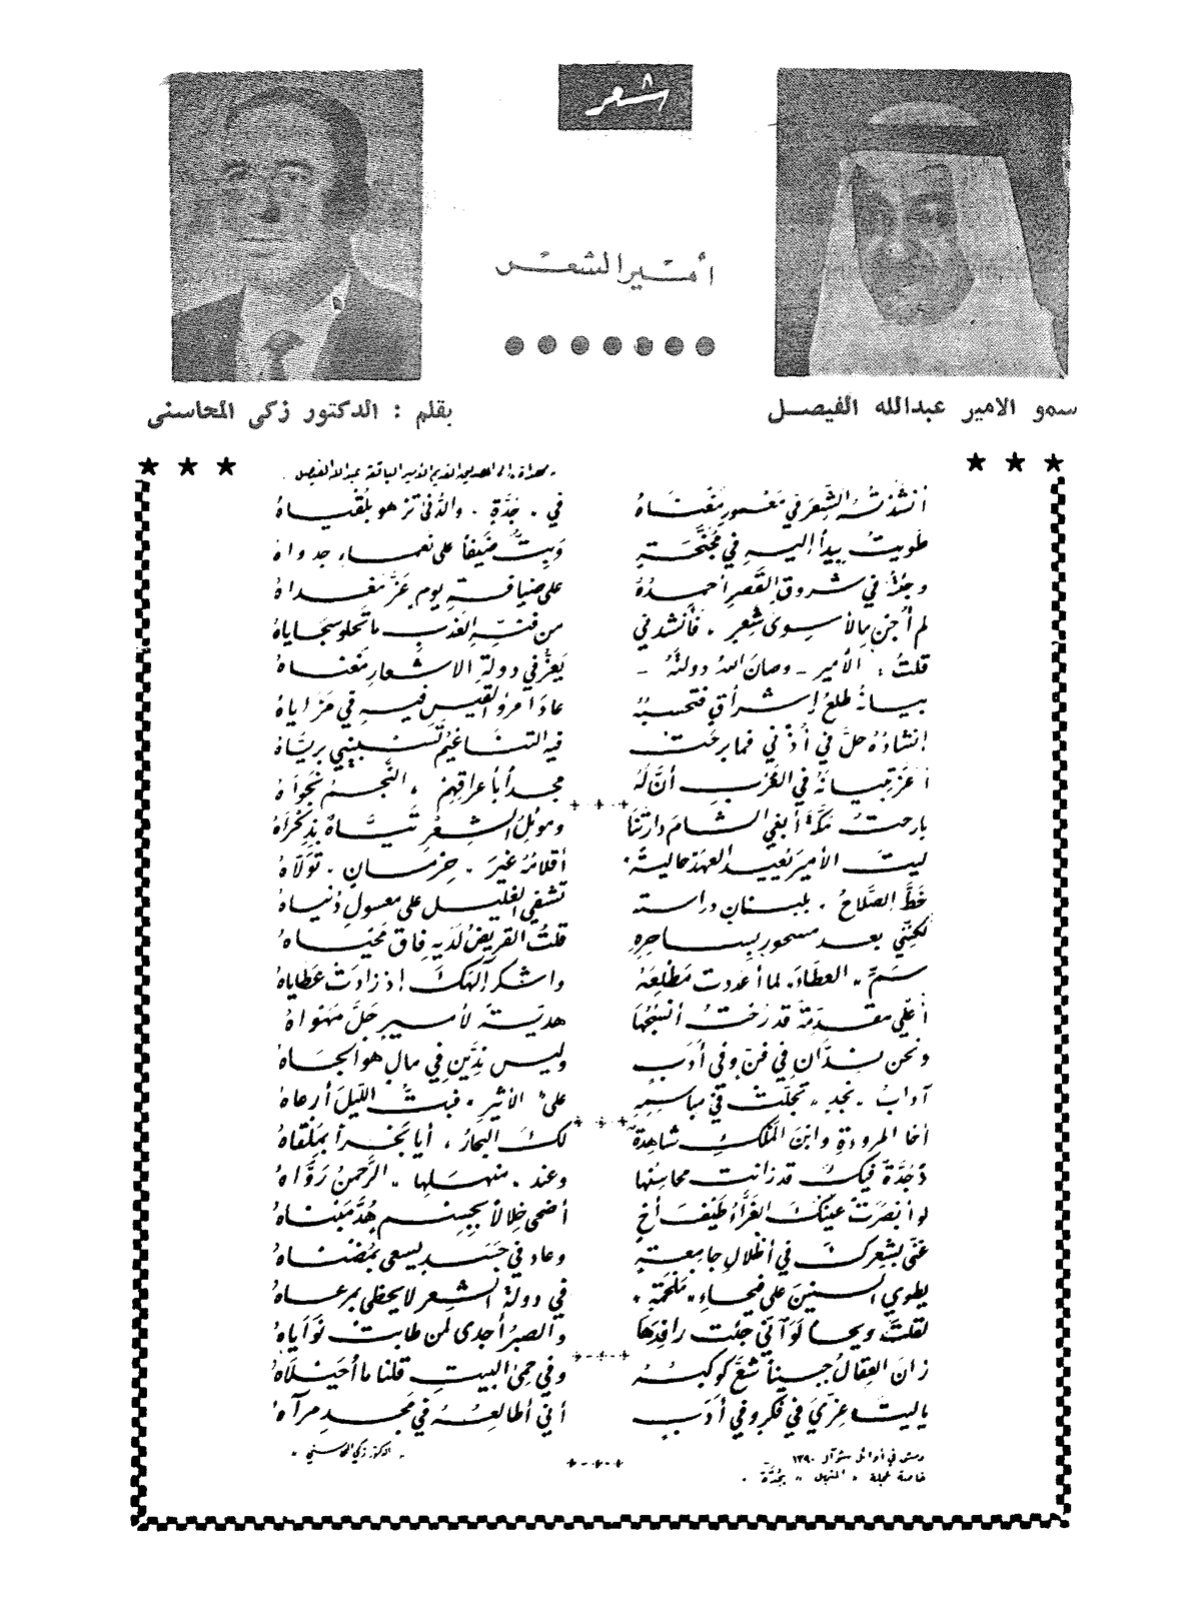 شعر
أمير الشعر
سمو الامير عبدالله الفيصل
بقلم : الدكتور زكى المحاسنى
مهداة الى الصديق القديم الأمير النابغة عبدالله الفيصل
أنشدته الشعر في معمور مغناه في . جدة . والدنى تزهو بلقياه
طويت بيدا إليه في مجنحة وبت ضيفا على نعماء جدواه
وجئت في شروق القصر أحمده على ضيافة يوم عز مغداه
لم أجن بالأسوى شعر . فأنشدني من فنه العذب ما تحلو سجاياه
قلت : الأمير - وصان الله دولته - يعز في دولة الاشعار مغناه
بيانه طلع إشراق فتحسبه عاد امرؤ القيس فيه في مزاياه
إنشاده حل في أذني فما برحت فيه التناغيم تسبيني برياه
أعز تبيانه في العرب أن له مجدا بأعراقهم ، النجم نجواه
بارحت مكة أبغي الشام دارتنا وموئل الشعر تياه بذكراه
ليت الأمير يعيد العهد حالية أقلامه غير . خرسان . تولاه
خط الصلاح . بلبنان دراسته تشفي الغليل على معسول دنياه
لكنني بعد مسحور بساحره قلت القريض لديه فاق محياه
سم " العطاء " لما أعددت مطلعه واشكر إلهك إذ زادت عطاياه
أعلي مقدمة قد رحت أنسجها هدية لأمير جل مهواه
ونحن ندان في فن وفي أدب وليس ندين في مال هو الجاه
آداب " نجد " تجلت في مباسمه على " الأثير " فبت الليل أرعاه
أخا المروءة وابن الملك شاهدة لك البحار ، أيا بحرا بملقاه
وجدة فيك قد زانت محاسنها وعند " منهلها " الرحمن رواه
لو أبصرت عينك الغراء طيف أخ أضحى خلالا بجسم هد مبناه
غنى بشعرك في أظلال جامعة وعاد في جسد يسعى بمضناه
يطوي السنين على فيحاء " ملحمة " في دولة الشعر لا يحظى بمرعاه
لقلت ويحا لو آني جئت رافدها والصبر أجدى لمن طابت نواياه
زان العقال جبينا شع كوكبه وفي حمى البيت قلنا ما أحيلاه
ياليت عزي في فكر وفي أدب أني أطالعه في مجد مرآه
دمشق في أوائل شوال ١٣٩٠
" الدكتور زكي المحاسني "
خاصة لمجلة " المنهل " بجدة .